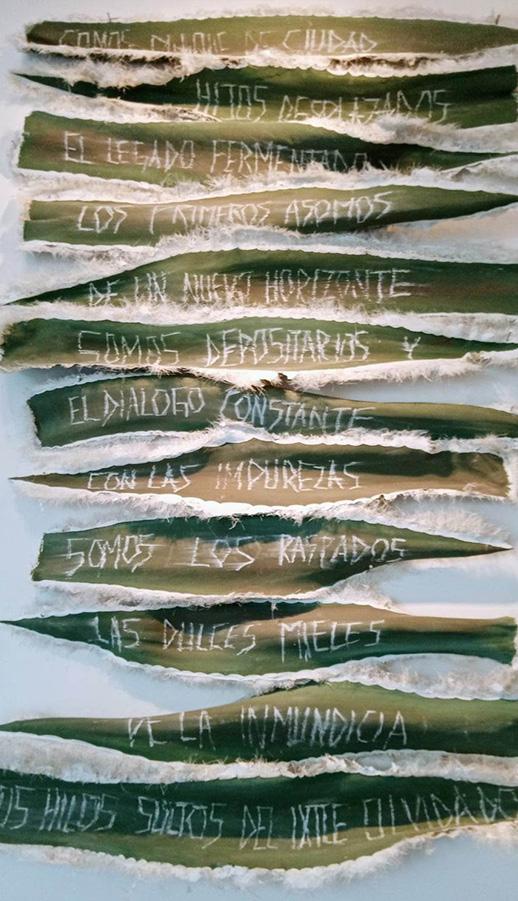 SOMOS PULQUE DE CIUDAD
HIJOS DESPLAZADOS
EL LEGADO FERMENTADO
LOS PRIMEROS ASOMOS
DE UN NUEVO HORIZONTE
SOMOS DEPOSITARIOS Y
EL DIALOGO CONSTANTE
CON LAS IMPUREZAS
SOMOS LOS RASPADOS
LAS DULCES MIELES
DE LA INMUNDICIA
OS HILOS SUELTOS DEL IXTLE OLVIDADO